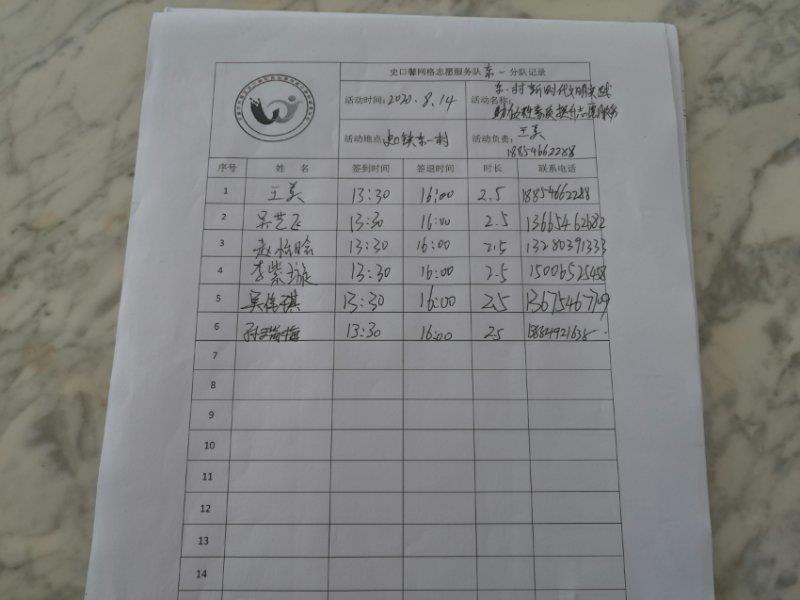 史口馨网格志愿服务队东一分队记录
活动时间：2020.8.14
活动名称：东一村新时代文明实践
志愿服务
活动地点：史口镇东一村
活动负责：王美
18854662288
序号 姓名 签到时间 签退时间 时长 联系电话
1 王美 13:30 16:00 2.5 18854662288
2 吴艺飞 13:30 16:00 2.5 13665462682
3 赵怡晗 13:30 16:00 2.5 13280391333
4 李紫璇 13:30 16:00 2.5 15006525458
5 13:30 16:00 2.5
6 13:30 16:00 2.5
7
8
9
10
11
12
13
14